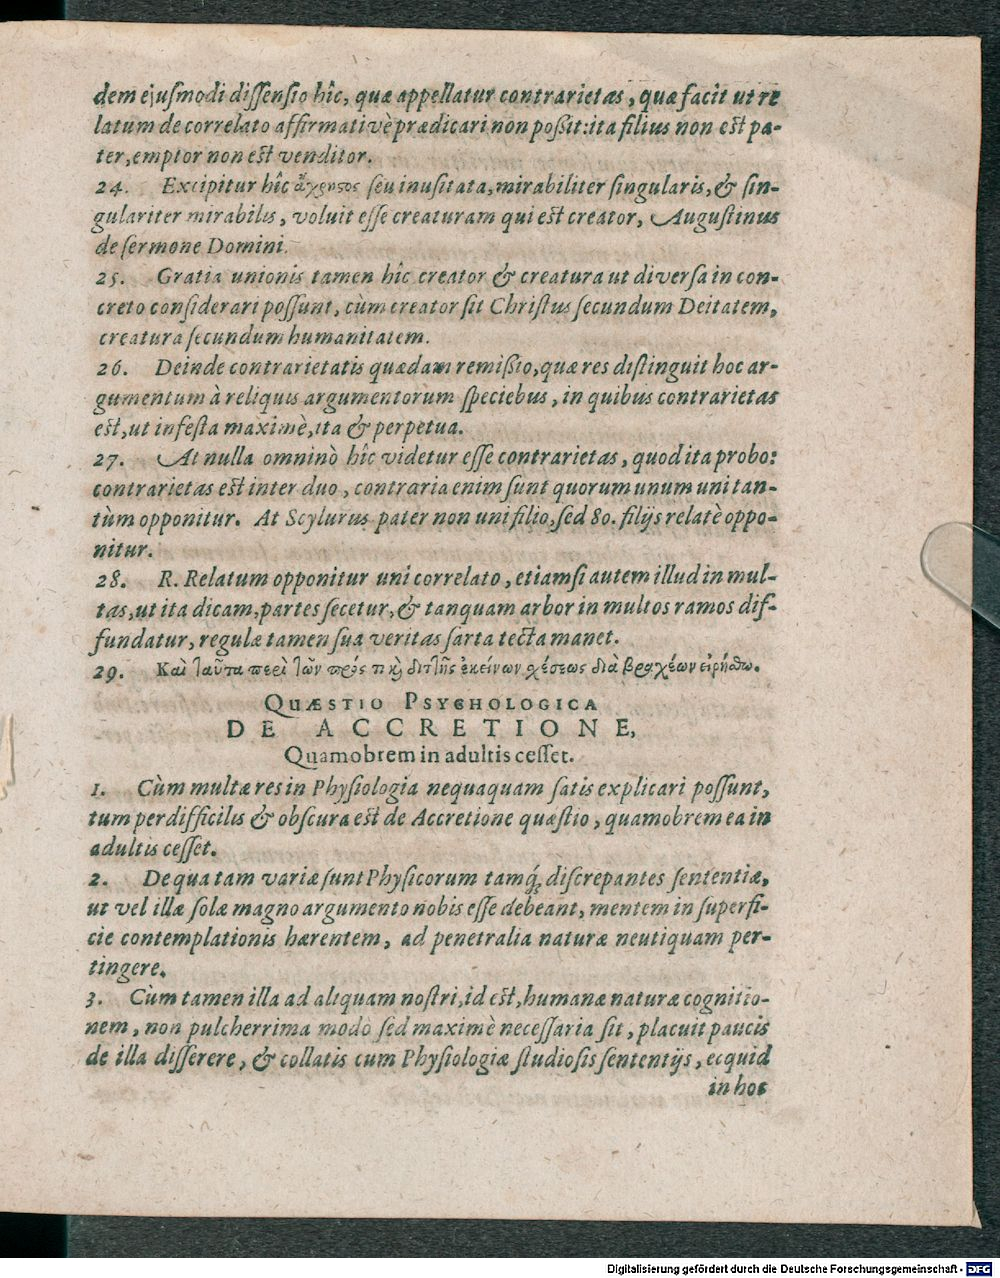 dem ejuſmodi diſſenſio hîc, quæ appellatur contrarietas, quæ facit ut re
latum de correlato affirmativè prædicari non poßit: ita filius non eſt pa-
ter, emptor non eſt venditor.
24. Excipitur hîc ἄχρηςος ſeu inuſitata, mirabiliter ſingularis, & ſin-
gulariter mirabilis, voluit eſſe creaturam qui eſt creator, Auguſtinus
de ſermone Domini.
25. Gratia unionis tamen hîc creator & creatura ut diverſa in con-
creto conſiderari poſſunt, cùm creator ſit Chriſtus ſecundum Deitatem,
creatura ſecundum humanitatem.
26. Deinde contrarietatis quædam remißio, quæ res diſtinguit hoc ar-
gumentum à reliquis argumentorum ſpeciebus, in quibus contrarietas
eſt, ut infeſta maximè, ita & perpetua.
27. At nulla omninò hîc videtur eſſe contrarietas, quod ita probo:
contrarietas eſt inter duo, contraria enim ſunt quorum unum uni tan-
tùm opponitur. At Scylurus pater non uni filio, ſed 80. filijs relatè oppo-
nitur.
28. R. Relatum opponitur uni correlato, etiamſi autem illud in mul-
tas, ut ita dicam, partes ſecetur, & tanquam arbor in multos ramos dif-
fundatur, regulæ tamen ſua veritas ſarta tecta manet.
29. Καὶ ταῦτα περὶ τῶν πρός τι κὶ ἐκείνων χέσεως διὰ βραχέων εἰρήθω.
QUÆSTIO PSYCHOLOGICA
DE ACCRETIONE,
Quamobrem in adultis ceſſet.
1. Cùm multæ res in Phyſiologia nequaquam ſatis explicari poſſunt,
tum perdifficilis & obſcura eſt de Accretione quæſtio, quamobrem ea in
adultis ceſſet.
2. De qua tam variæ ſunt Phyſicorum tamq́; diſcrepantes ſententiæ,
ut vel illæ ſolæ magno argumento nobis eſſe debeant, mentem in ſuperfi-
cie contemplationis hærentem, ad penetralia naturæ neutiquam per-
tingere.
3. Cùm tamen illa ad aliquam noſtri, id eſt, humanæ naturæ cognitio-
nem, non pulcherrima modò ſed maximè neceſſaria ſit, placuit paucis
de illa diſſerere, & collatis cum Phyſiologiæ ſtudioſis ſententijs, ecquid
in hoc
Digitalisierung gefördert durch die Deutsche Forschungsgemeinschaft - DFG